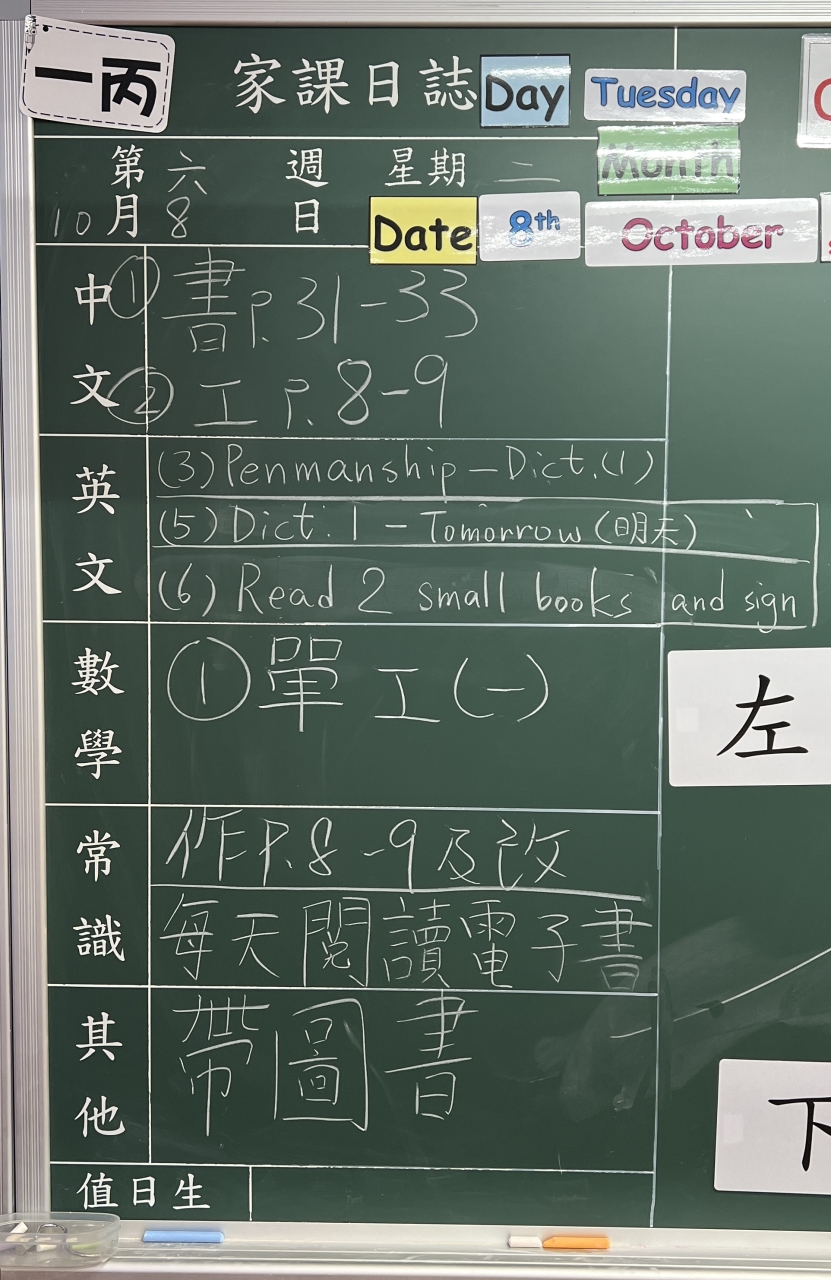 一丙
家課日誌 Day Tuesday
第六週 星期二 Month
10月8日 Date 8th October
中文
① 書 P.31-33
② 工 P.8-9
英文
(3) Penmanship - Dict.(1)
(5) Dict. 1 - Tomorrow (明天)
(6) Read 2 small books and sign
數學
① 單工(一)
左
常識
作 P.8-9 及改
每天閱讀電子書
其他
帶圖書
下
值日生